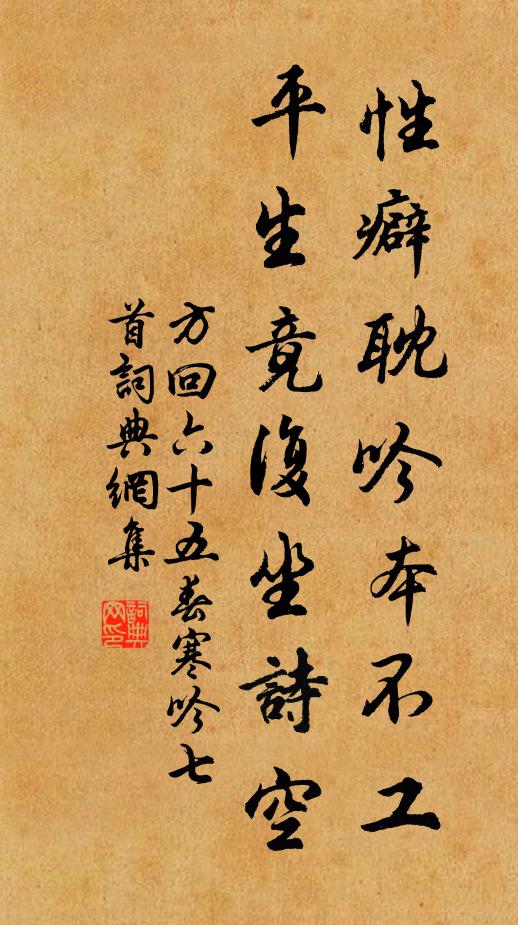 性癖耽吟本不工
平生竟復坐詩空
方回六十五春寒吟七
首詞典網集
詞典網印